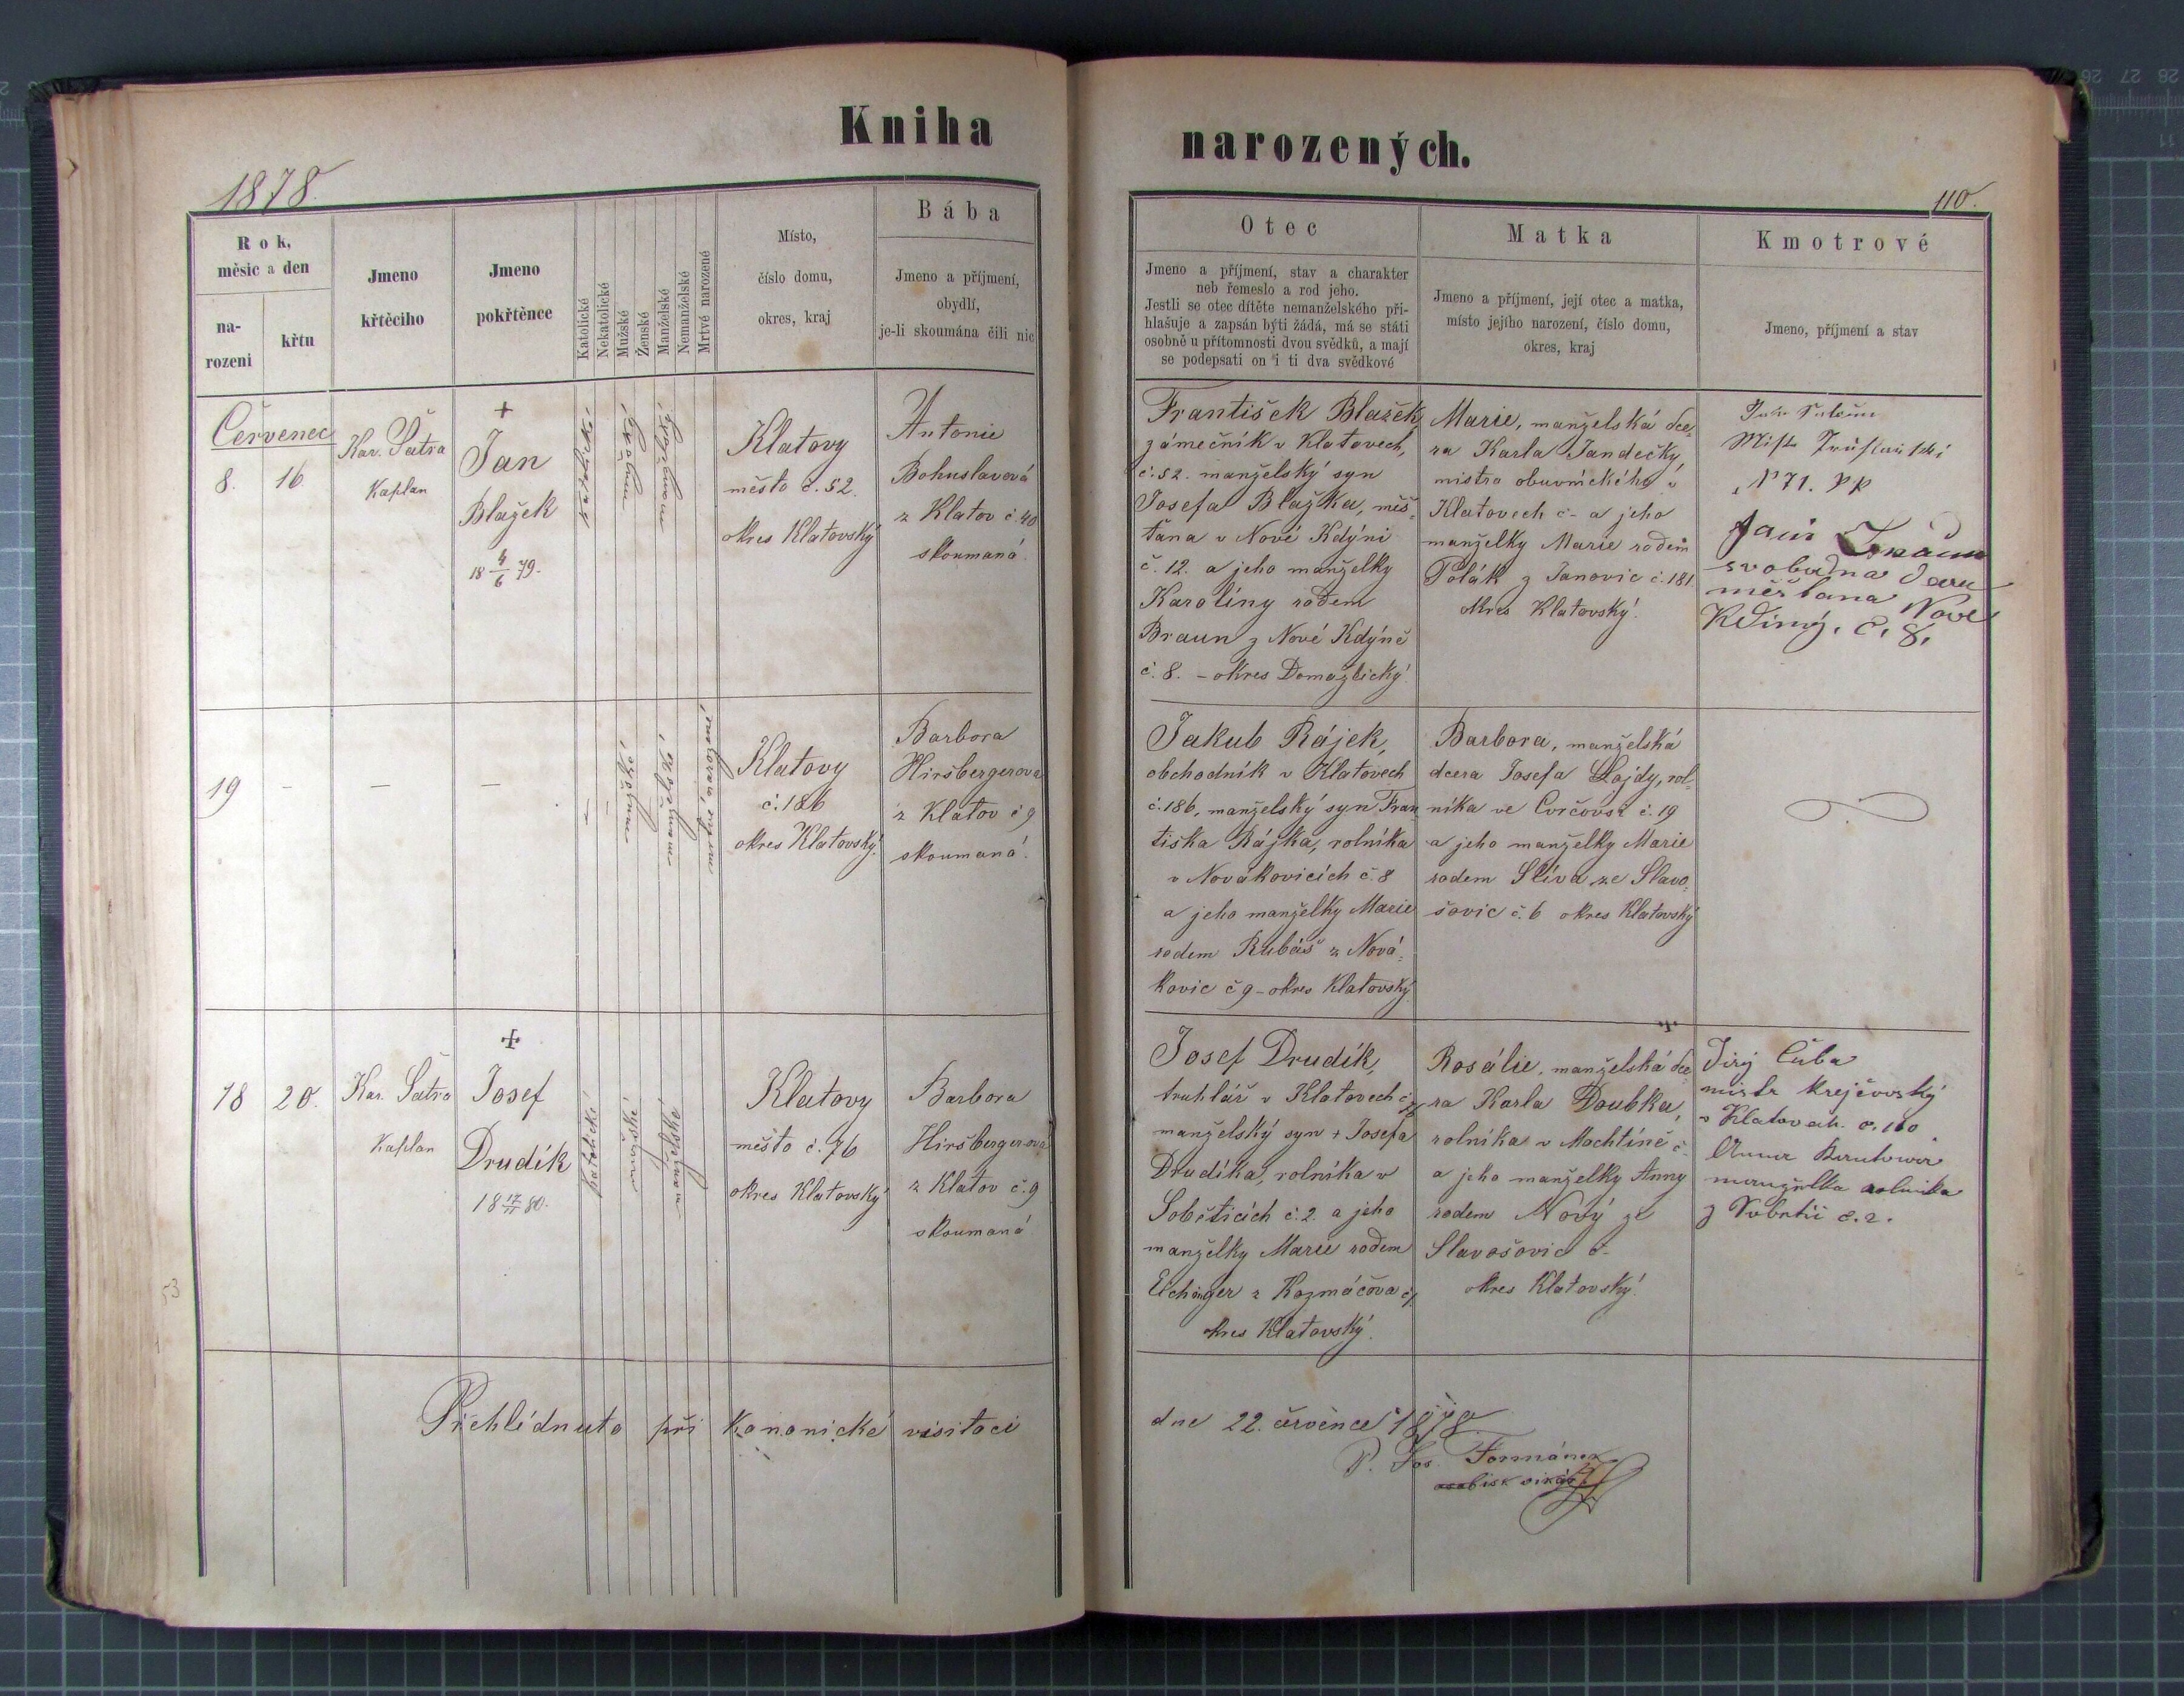 Kniha
narozených.
1878.
110.
Rok,
měsic a den
na-
rozeni
křtu
Jmeno
křtěciho
Jmeno
pokřtěnce
Katolické
Nekatolické
Mužské
Ženské
Manželské
Nemanželské
Mrtvé narozené
Místo,
číslo domu,
okres, kraj
Bába
Jmeno a příjmení,
obydlí,
je-li skoumána čili nic
Otec
Jmeno a příjmení, stav a charakter
neb řemeslo a rod jeho.
Jestli se otec dítěte nemanželského při-
hlašuje a zapsán býti žádá, má se státi
osobně u přítomnosti dvou svědků, a mají
se podepsati on i ti dva svědkové
Matka
Jmeno a příjmení, její otec a matka,
místo jejího narození, číslo domu,
okres, kraj
Kmotrové
Jmeno, příjmení a stav
Červenec
8. 16
Kar. Šatra
Kaplan
+
Jan
Blažek
18 4/6 79.
Klatovy
město č. 52.
okres Klatovský
Antonie
Bohuslavová
z Klatov č. 40
skoumaná.
František Blažek,
zámečník v Klatovech,
č. 52. manželský syn
Josefa Blažka, měš-
ťana v Nové Kdýni
č. 12. a jeho manželky
Karolíny rodem
Braun z Nové Kdýně
č. 8. - okres Domažlický.
Marie, manželská dce-
ra Karla Jandečky,
mistra obuvnického v
Klatovech č - a jeho
manželky Marie rodem
Polák z Janovic č. 181
okres Klatovský.
N 71.
svobodna
měšťana Nové
č. 8.
19 - - -
Klatovy
č. 186
okres Klatovský.
Barbora
Hiršbergerova
z Klatov č 9
skoumaná.
Jakub Rájek,
obchodník v Klatovech
č. 186, manželský syn Fran
tiška Rájka, rolníka
v Novákovicích č. 8
a jeho manželky Marie
rodem Rubáš z Nová-
kovic č 9 - okres Klatovský
Barbora, manželská
dcera Josefa Lojdy, rol-
níka ve č. 19
a jeho manželky Marie
rodem Slíva ze Slavo-
šovic č. 6 okres Klatovský
18 20.
Kar. Šatra
Kaplan
+
Josef
Drudík
18 17/11 80.
Katolické
Klatovy
město č. 76
okres Klatovský
Barbora
Hiršbergerova
z Klatov č. 9
skoumaná
Josef Drudík,
truhlář v Klatovech č
manželský syn + Josefa
Drudíka, rolníka v
Soběticích č. 2. a jeho
manželky Marie rodem
Eichinger z č
okres Klatovský.
+
Rosálie, manželská dce
ra Karla Doubka,
rolníka v Mochtíně č-
a jeho manželky Anny
rodem Nový ze
Slavošovic č-
okres Klatovský.
Jirý Čuba
mistr krejčovský
v Klatovech. č. 160
Anna
manželka rolníka
z č. 2.
Přehlédnuto při kanonické visitaci
dne 22. července 1878
P. Jos. Formánek
bisk vikář